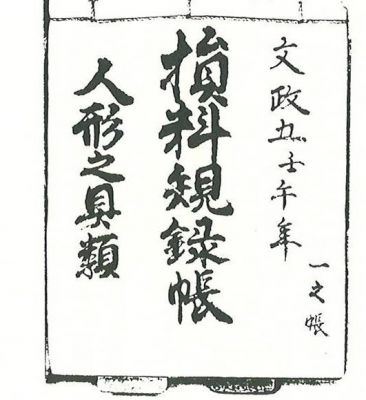 文政五壬午年
一之帳
損料規録帳
人形之具類